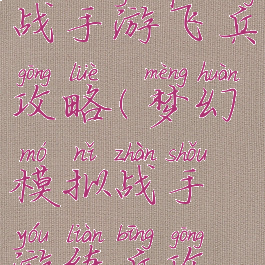 战手游飞兵
gōng lüè mèng huàn
攻略(梦幻
mó nǐ zhàn shǒu
模拟战手
yóu liàn bīng gōng
游练兵攻